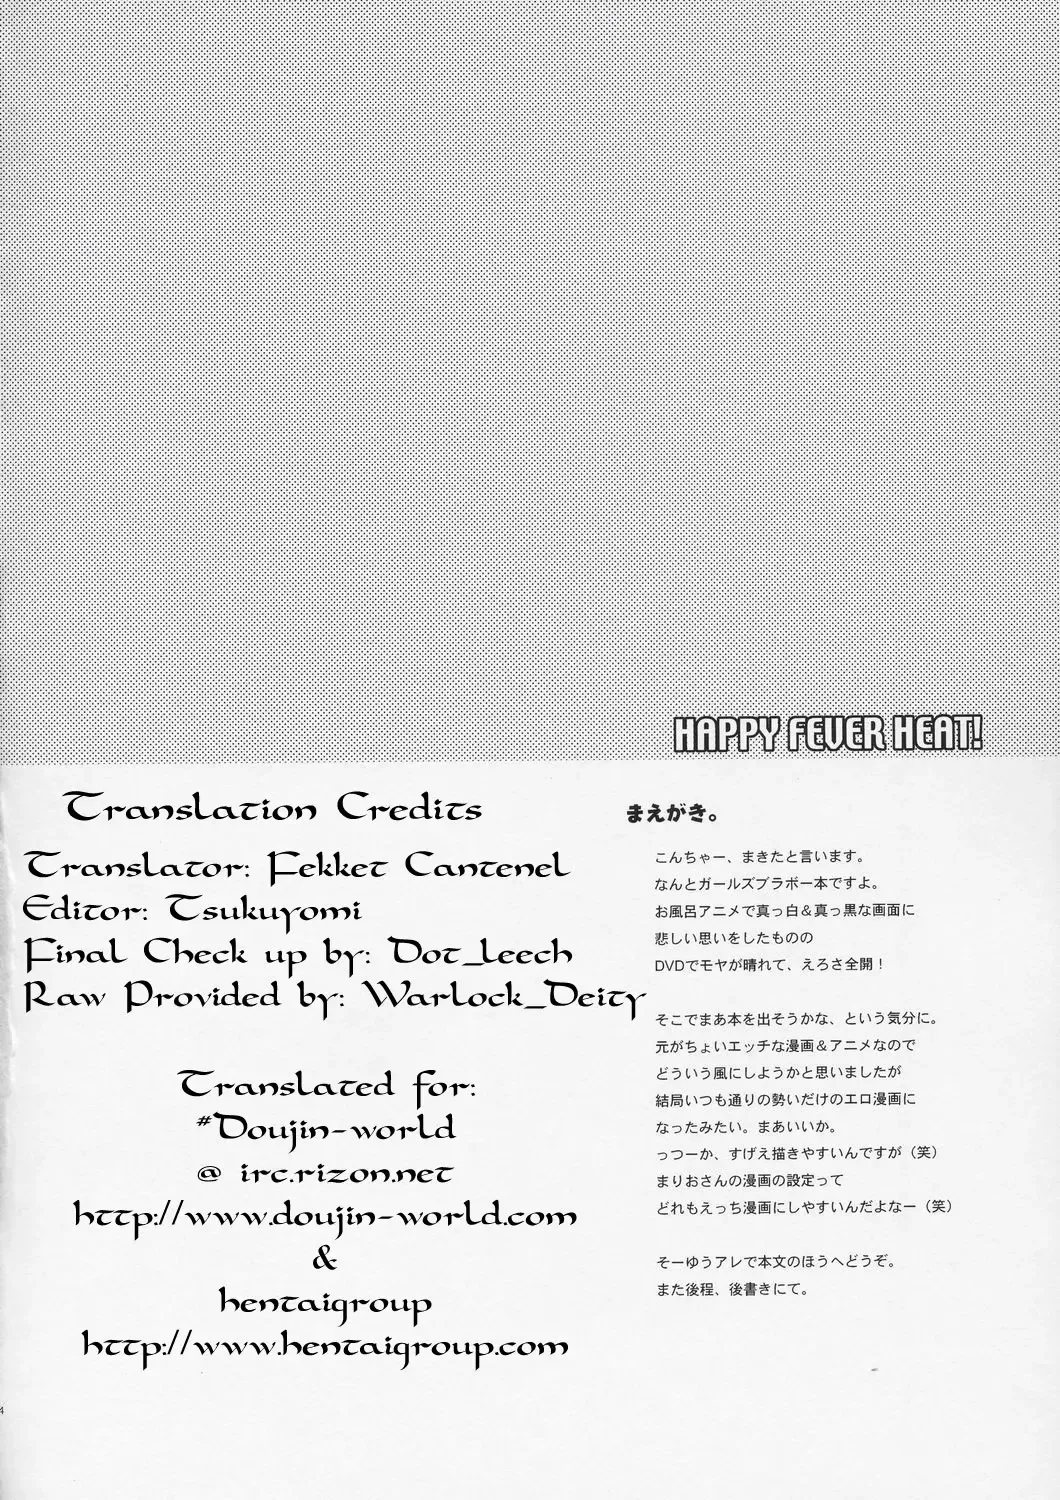 HAPPY FEVER HEAT!
Translation Credits
Translator: Fekket Cantenel
Editor: Tsukuyomi
Final Check up by: Dot_leech
Raw Provided by: Warlock_Deity
Translated for:
#Doujin-world
@ irc.rizon.net
http://www.doujin-world.com
&
hentaigroup
http://www.hentaigroup.com
まえがき。
こんちゃー、まきたと言います。
なんとガールズブラボー本ですよ。
お風呂アニメで真っ白＆真っ黒な画面に
悲しい思いをしたものの
DVDでモヤが晴れて、えろさ全開！
そこでまあ本を出そうかな、という気分に。
元がちょいエッチな漫画＆アニメなので
どういう風にしようかと思いましたが
結局いつも通りの勢いだけのエロ漫画に
なったみたい。まあいいか。
っつーか、すげえ描きやすいんですが（笑）
まりおさんの漫画の設定って
どれもえっち漫画にしやすいんだよなー（笑）
そーゆうアレで本文のほうへどうぞ。
また後程、後書きにて。
4